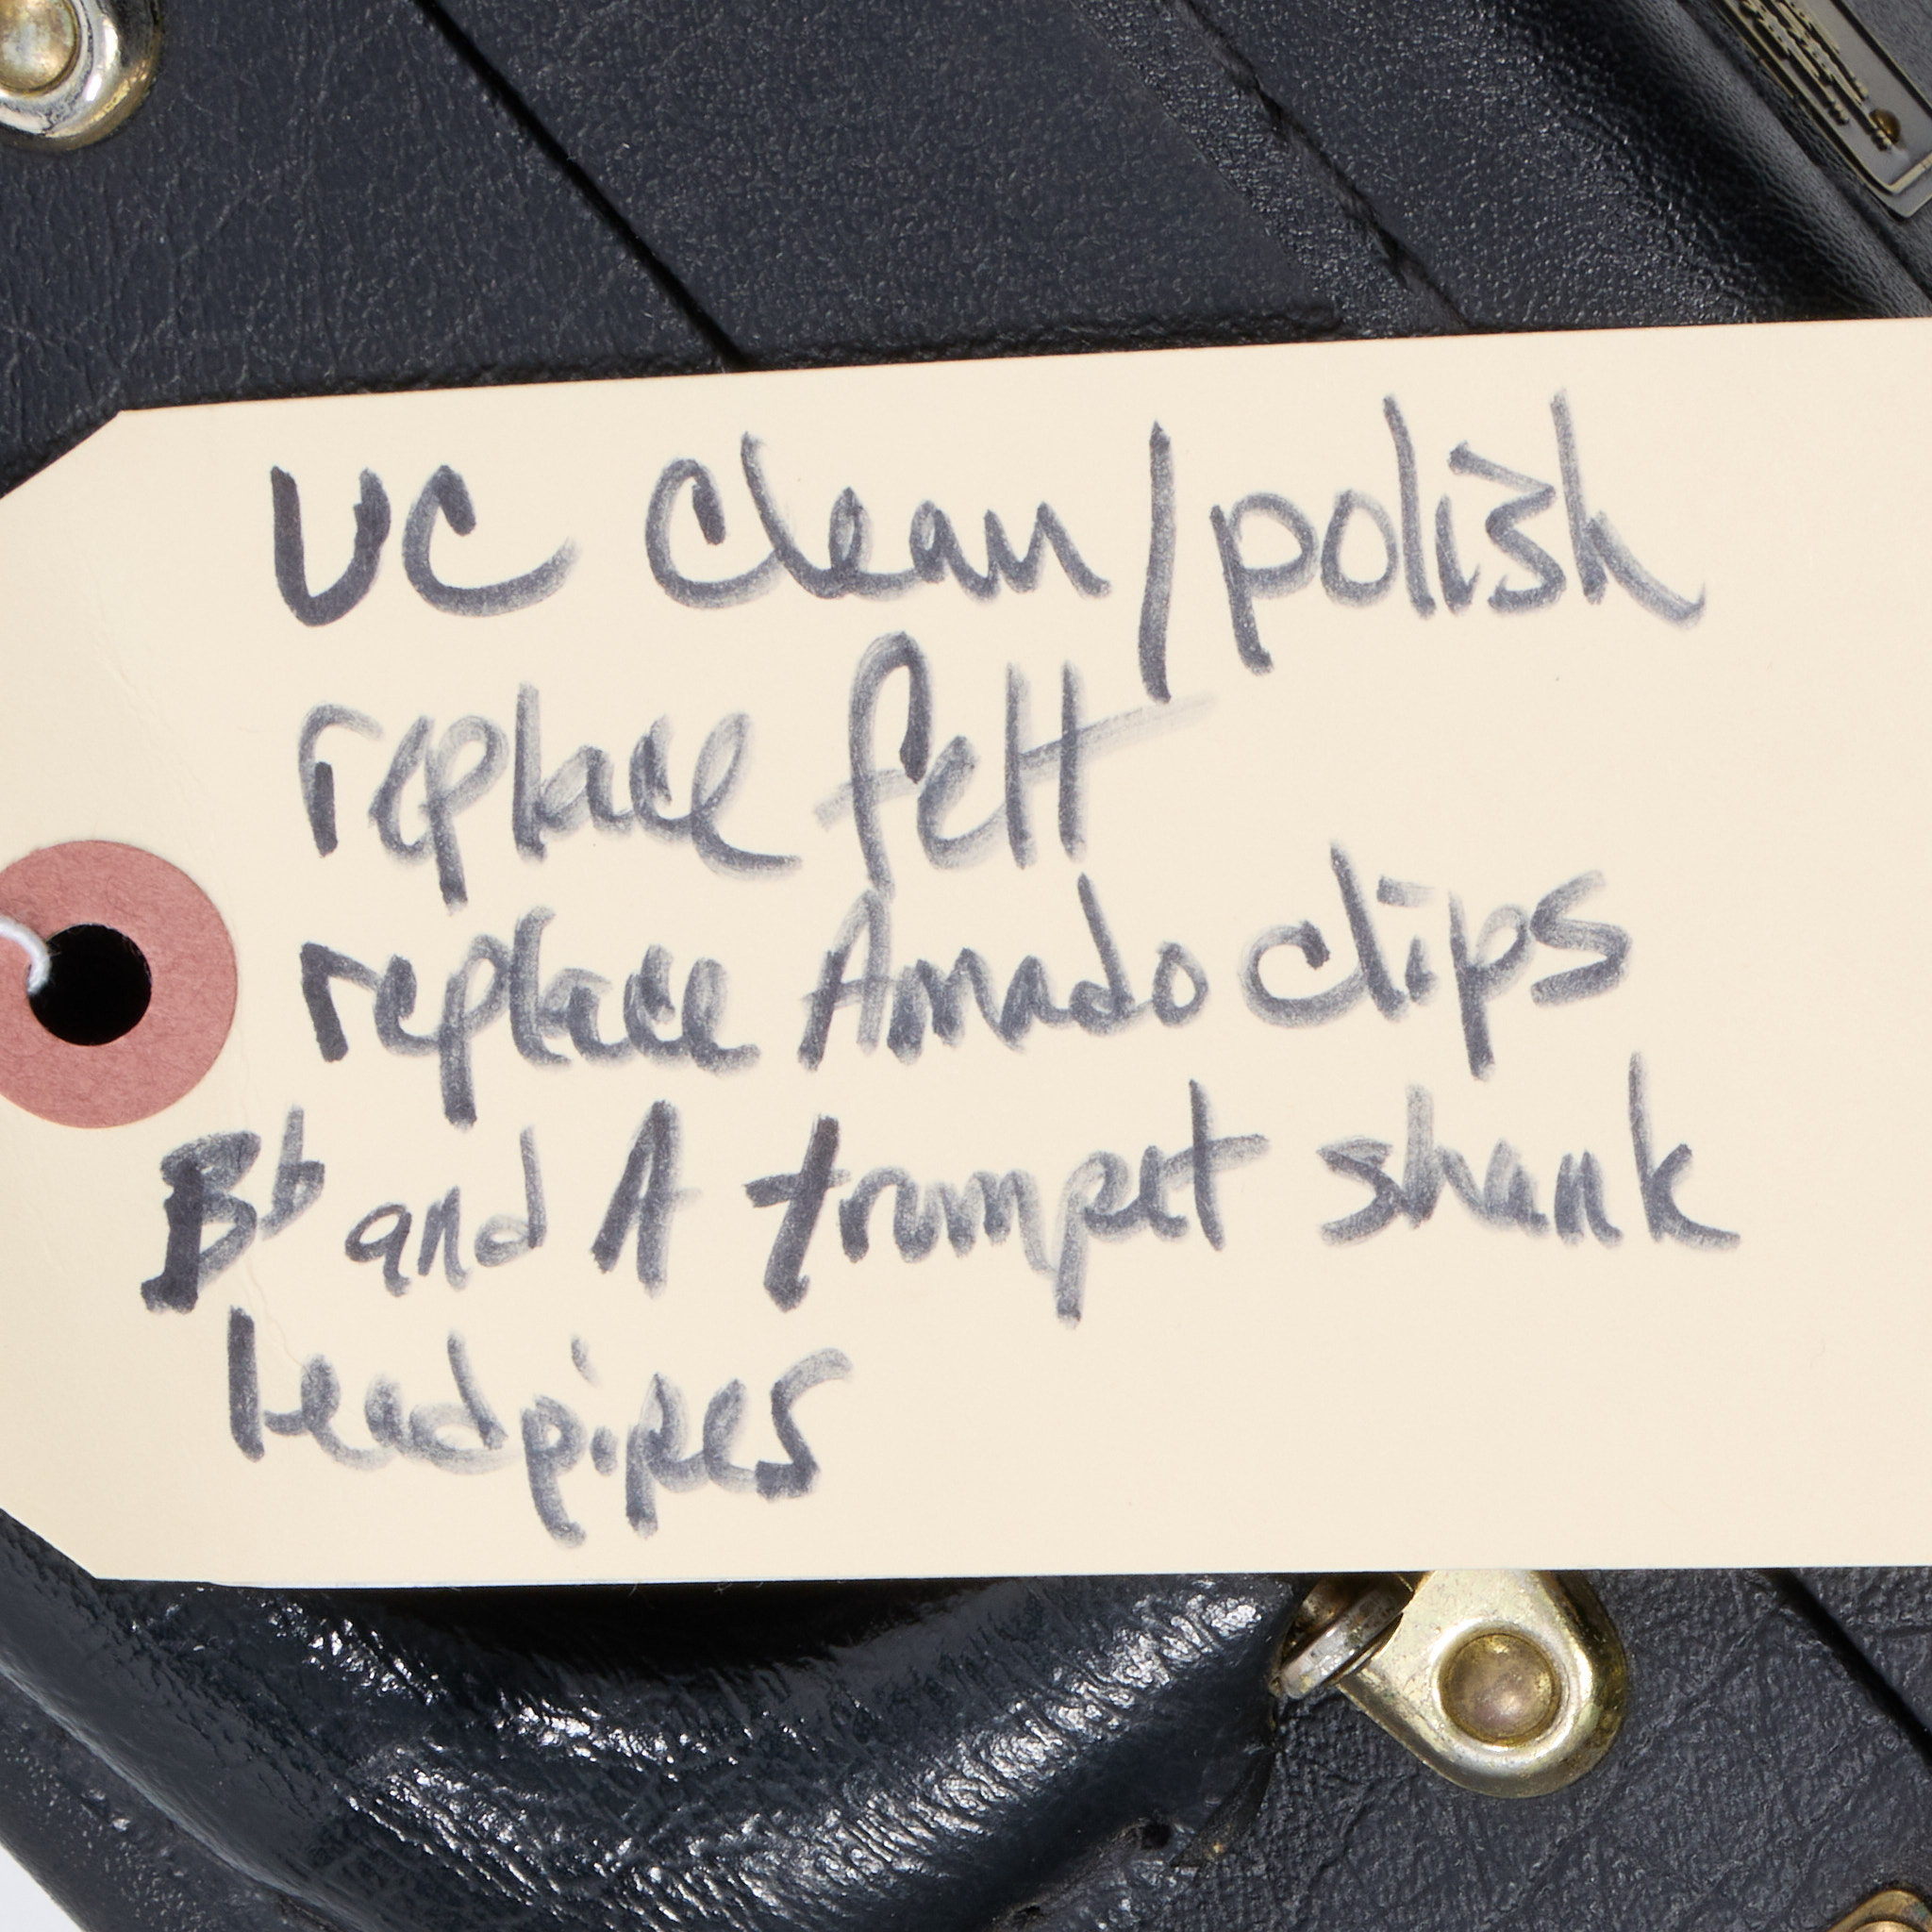 UC Clean/polish
replace felt
replace Amado clips
Bb and A trumpet shank
leadpipes